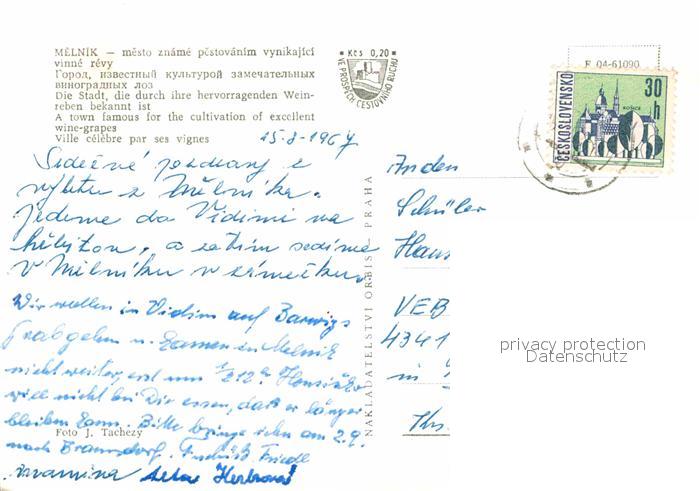 MĚLNÍK — město známé pěstováním vynikající
vinné révy
Город, известный культурой замечательных
виноградных лоз
Die Stadt, die durch ihre hervorragenden Wein-
reben bekannt ist
A town famous for the cultivation of excellent
wine-grapes
Ville célèbre par ses vignes
Kčs 0,20
VE PROSPĚCH CESTOVNÍHO RUCHU
F 04-61090
ČESKOSLOVENSKO
30
h
KOŠICE
25-8-1967
Srdečné pozdravy z
výletu z Mělníka.
Jedeme do Vidimi na
a zatím sedíme
v Mělníku v zámečku.
Wir wollen in Vidim auf
Grab gehen u. kamen in Melnik
nicht weiter, erst um 1/2 12 h.
will nicht bei Dir essen, daß er länger
bleiben kann. Bitte bringe ihn am 2.9.
nach
Foto J. Tachezy
NAKLADATELSTVÍ ORBIS PRAHA
An den
Schüler
Hans
VEB
4341
in
privacy protection
Datenschutz